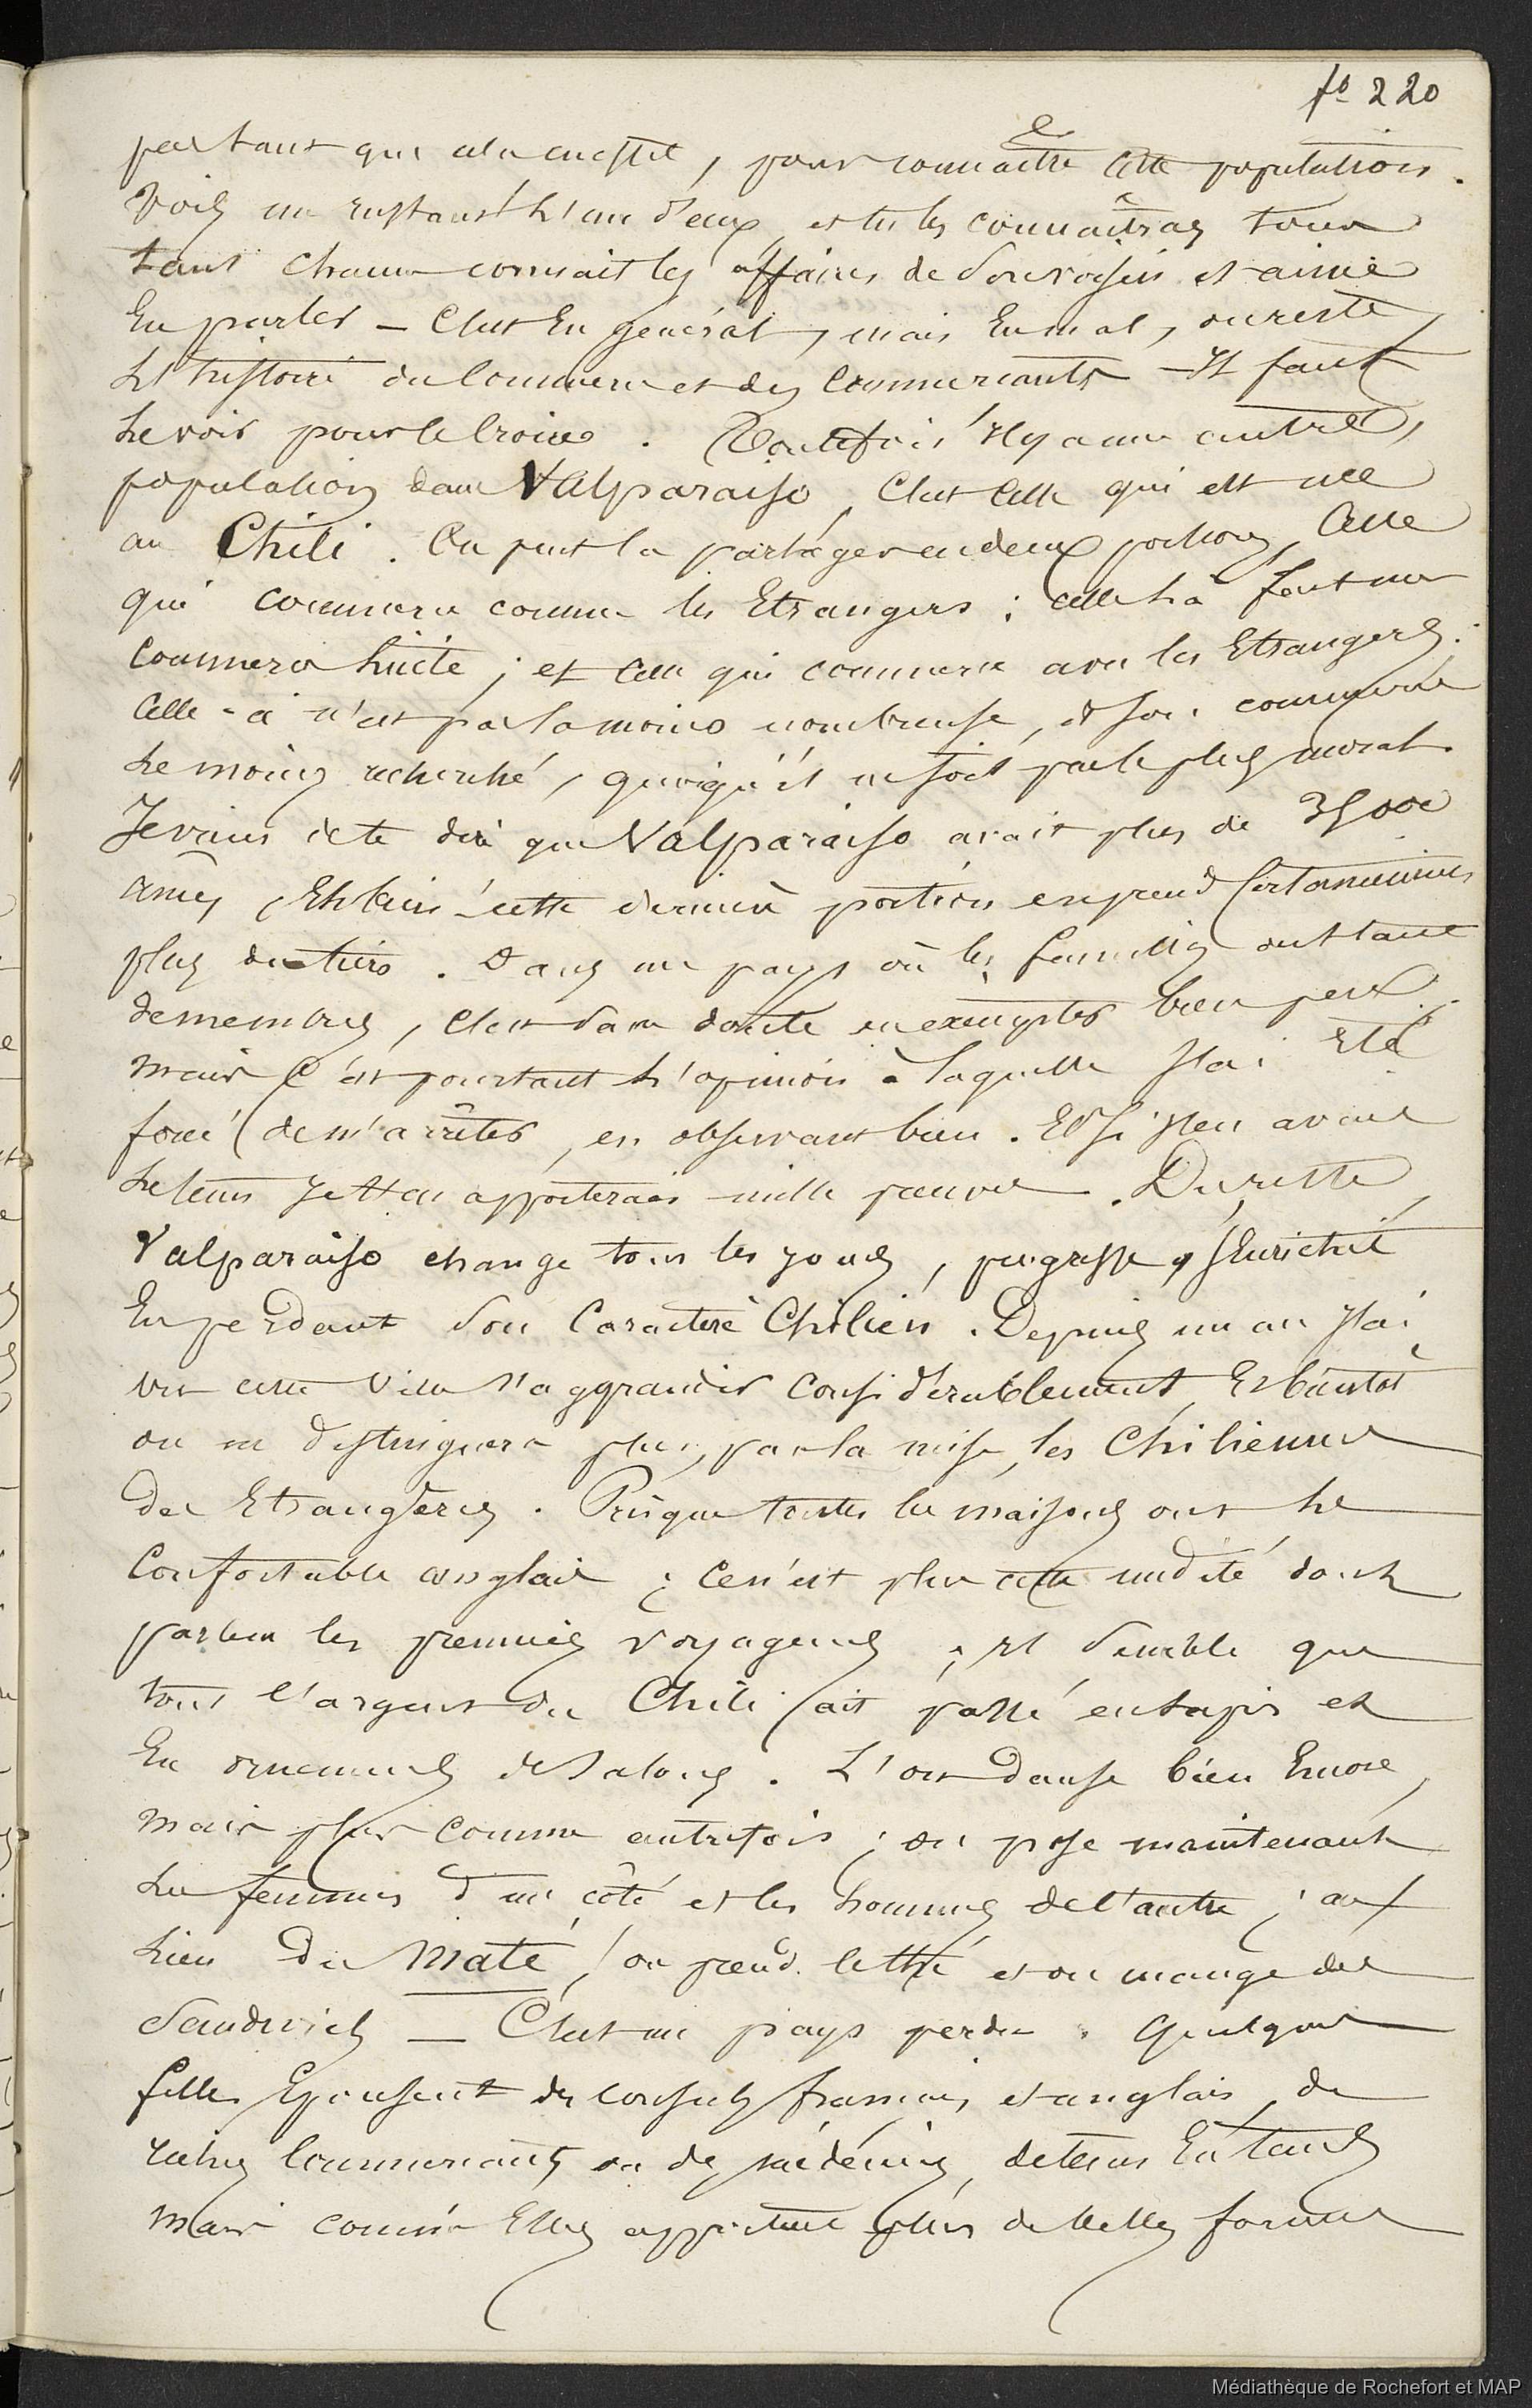 fo 220
partant que cela en effet, pour connaître cette population.
Vois un instant l'un d'eux, et tu les connaîtras tous
tant chacun connait les affaires de son voisin et aime
En parler — C'est En général, mais En mal, du reste,
L'histoire du Commerce et des Commercants — Il faut
Le voir pour le Croire. Toutefois il y a une autre
population dans Valparaiso, C'est Celle qui est née
au Chili. On peut la partager en deux portions, Celle
qui commerce comme les Etrangers ; celle là fait un
Commerce licite ; et Celle qui commerce avec les Etrangers :
Celle-ci n'est pas la moins nombreuse, et son commerce
Le moins recherché, quoiqu'il ne soit pas le plus moral.
Je viens de te dire que Valparaiso avait plus de 35000
âmes, Eh bien ! cette dernière portion en prend Certainement
plus du tiers. Dans un pays où les familles ont tant
de membres, C'est sans doute en excepter bien peu,
mais C'est pourtant L'opinion à laquelle J'ai Eté
forcé de m'arrêter, en observant bien. Et Si J'en avais
Le tems Je t'en apporterais mille preuves. Du reste,
Valparaiso change tous les jours, progresse et S'Enrichit
En perdant Son Caractère Chilien. Depuis un an J'ai
vu cette Ville s'aggrandir Considérablement, Et bientôt
on ne distinguera plus, par la mise, les Chiliennes
des Etrangères. Presque toutes les maisons ont le
Confortable anglais ; Ce n'est plus cette nudité dont
parlent les premiers voyageurs ; Il Semble que
tout l'argent du Chili ait passé en tapis et
En ornements de Salons. L'on danse bien Encore,
mais plus comme autrefois ; on pose maintenant
Les femmes d'un côté et les hommes de l'autre ; au
Lieu du Maté, on prend le thé et on mange des
Sandwich — C'est un pays perdu. Quelques
filles Epousent des Consuls français et anglais, de
riches Commercants ou des médecins, de tems En tems
mais comme Elles apportent plus de belles formes
Médiathèque de Rochefort et MAP